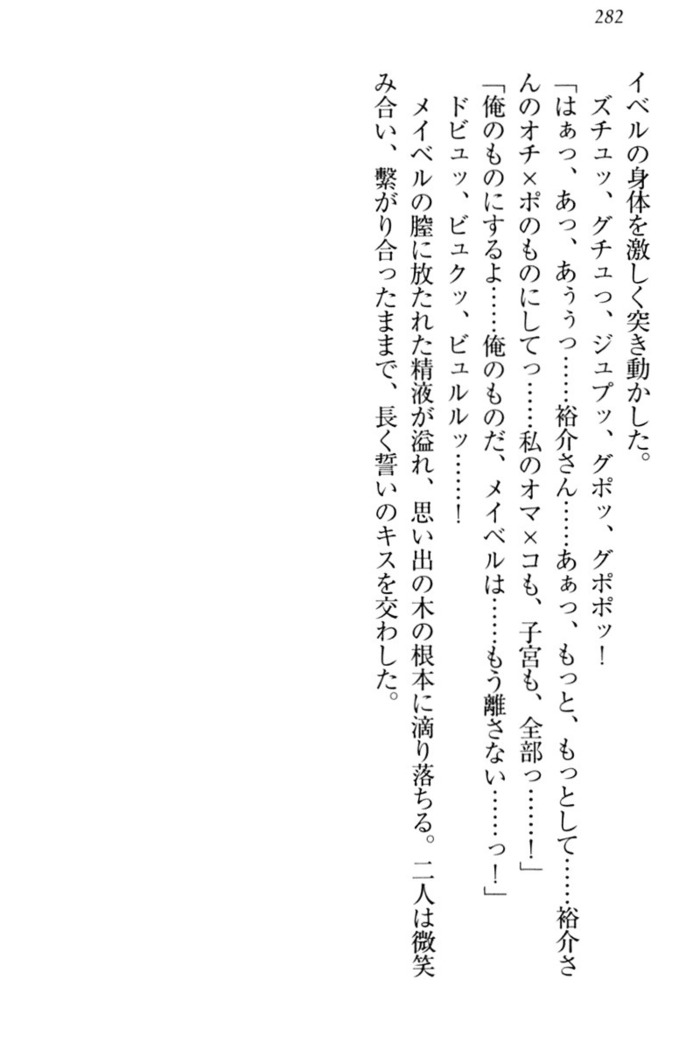 282
イベルの身体を激しく突き動かした。
ズチュッ、グチュっ、ジュプッ、グポッ、グポポッ！
「はぁっ、あっ、あぅぅっ……裕介さん……あぁっ、もっと、もっとして……裕介さ
んのオチ×ポのものにしてっ……私のオマ×コも、子宮も、全部っ……！」
「俺のものにするよ……俺のものだ、メイベルは……もう離さない……っ！」
ドビュッ、ビュクッ、ビュルルッ……！
メイベルの膣に放たれた精液が溢れ、思い出の木の根本に滴り落ちる。二人は微笑
み合い、繋がり合ったままで、長く誓いのキスを交わした。